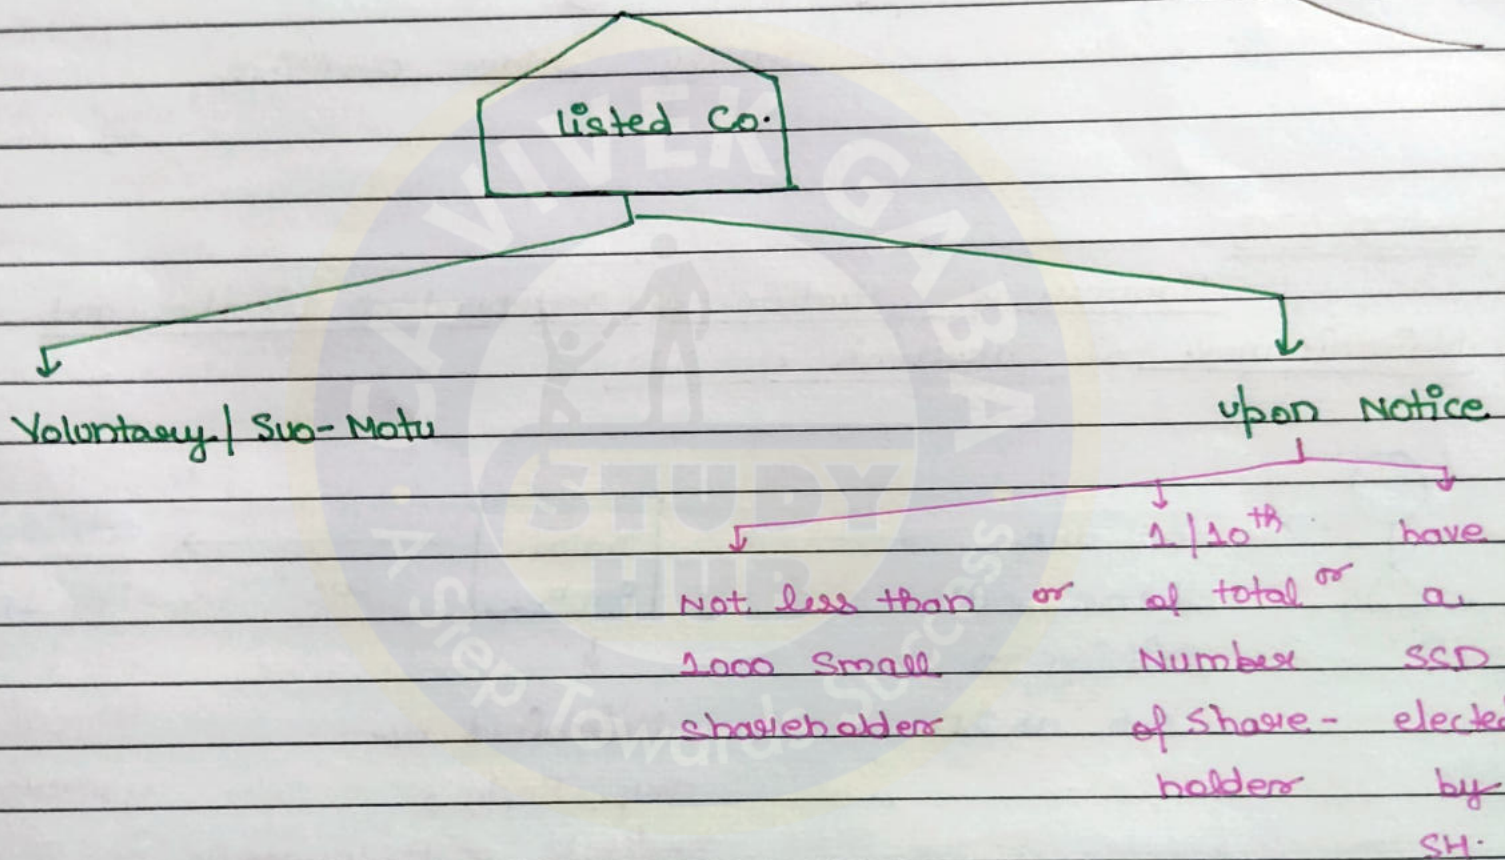 Listed Co.
Voluntary / Suo-Motu
upon Notice
Not less than
1000 Small
shareholder
or
1/10th
of total
Number
of Share-
holder
or
have
a
SSD
elected
by
SH.
CA VIVEK GABA
STUDY
HUB
A Step Towards Success